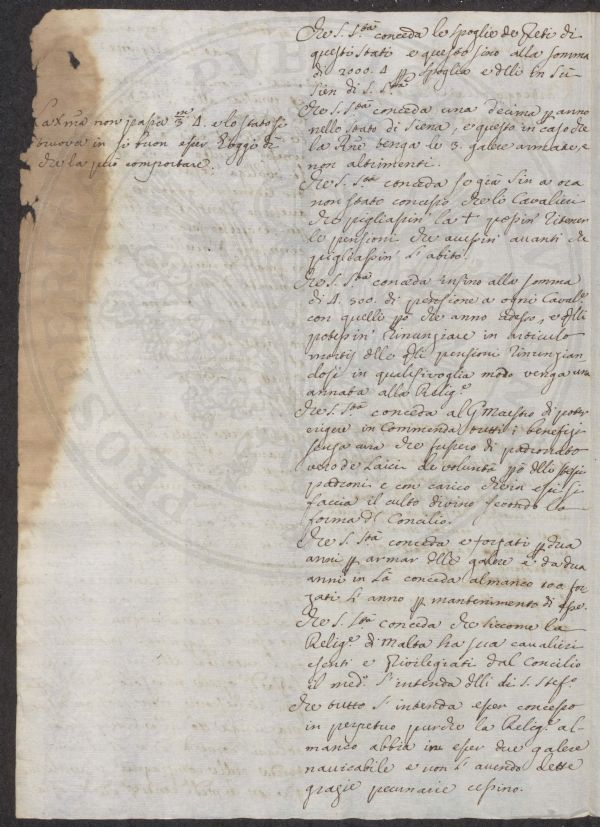 Che S. Stà conceda le spoglie de Preti di
questi stati e questo sino alla somma
di 2000. ∆ p spoglia e dlli in Ser
di S. Stà
Che S. Stà conceda una decima p anno
nello stato di Siena, e questo in caso che
la Rne tenga le 3. galere armate, e
non altrimenti.
Che S. Stà conceda se già sin a ora
non stato concesso che li Cavalieri
che pigliassin' la + possin' ritener
le pensioni che avessin' avanti che
pigliassin' l'abito.
Che S. Stà conceda insino alla somma
di ∆. 300. di pensione a ogni Caval.e
con quelle pò che anno adesso, e qlli
potessin' rinunziare in articulo
mortis dlle qli pensioni rinunzian
dosi in qualsivoglia modo venga una
annata alla Relig.e
Che S. Stà conceda al G Maestro di poter
erigere in Commenda tutti i benefizi
senza cura che fussero di padronato
vero de Laici de voluntà pò dlli stessi
padroni e con carico che in essi si
faccia il culto divino secondo la
forma d Concilio.
Che S. Stà conceda e forzati p dua
anni p armar dlle galere e da dua
anni in là conceda almanco 100 for
zati l'anno p mantenimento di esse.
Che S. Stà conceda che siccome la
Relig.e di Malta ha sua cavalieri
esenti e privilegiati dal Concilio
il med.o s'intenda dlli di S. Stef.o
Che tutto s'intenda esser concesso
in perpetuo purche la Relig.e al-
manco abbia in esser due galere
navicabile e non l'avendo dette
grazie pecuniarie cessino.
La Xma non passa m/3 ∆. e lo stato si
truova in sì buon esser hoggidì
che la può comportare.